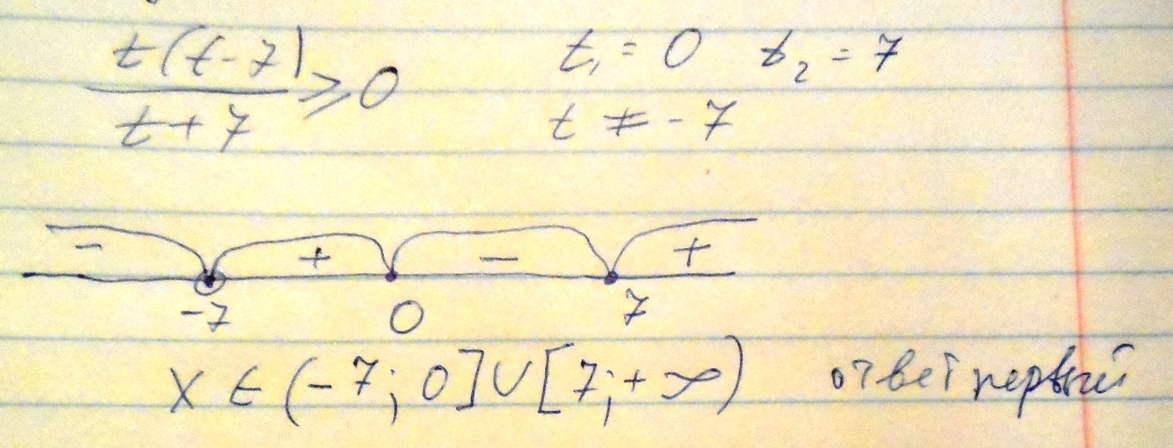 t(t-7)/t+7 ≥ 0 t₁ = 0 t₂ = 7
t ≠ -7
- + - +
-7 0 7
x ∈ (-7; 0] ∪ [7; +∞) ответ первый